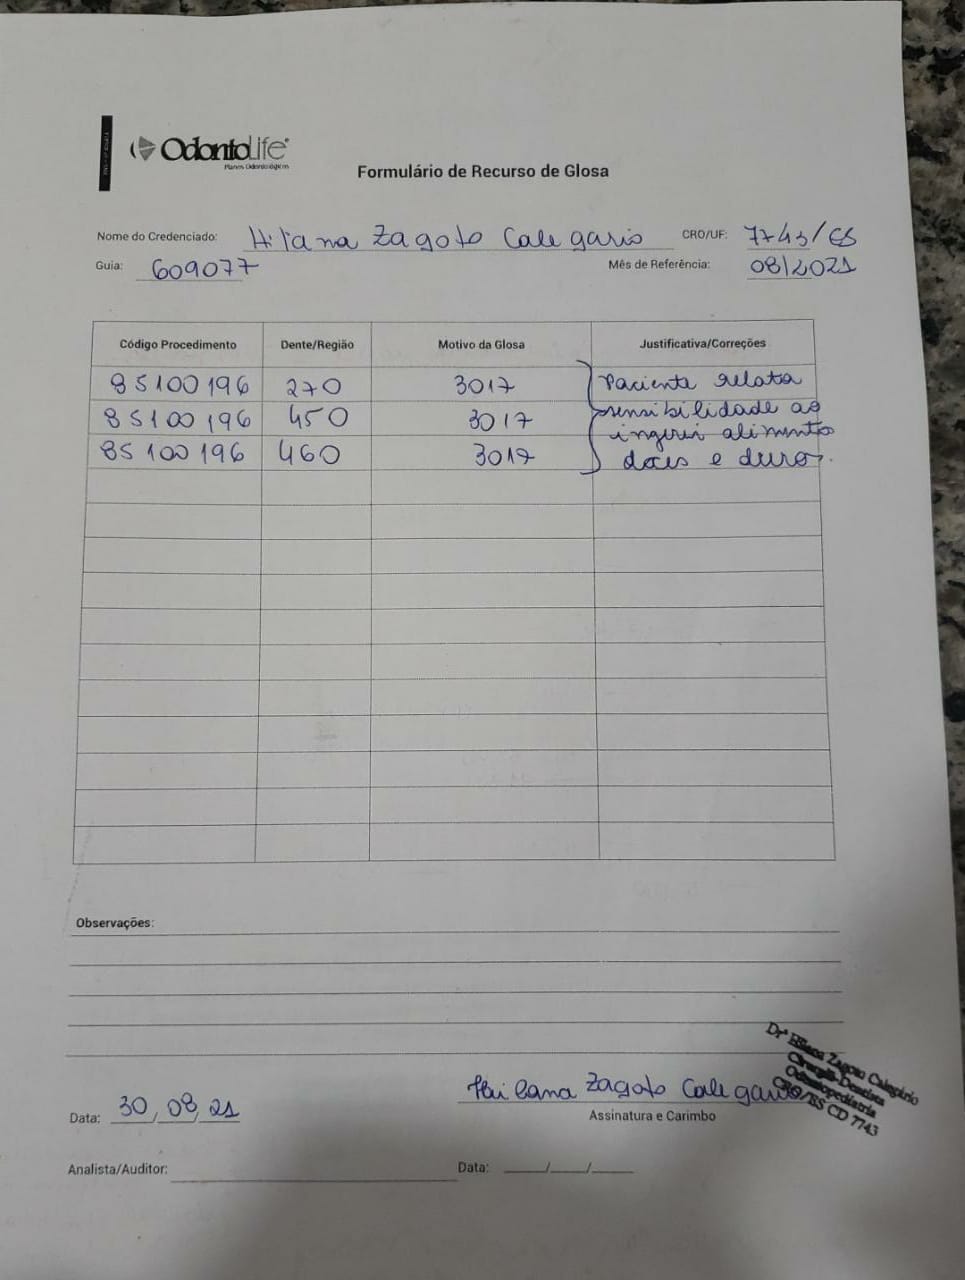 OdontoLife
Planos Odontológicos
Formulário de Recurso de Glosa
Nome do Credenciado: Zagoto Calegario CRO/UF: 7743/ES
Guia: 609077 Mês de Referência: 08/2021
Código Procedimento Dente/Região Motivo da Glosa Justificativa/Correções
85100196 270 3017 Paciente relata
85100196 450 3017 sensibilidade ao
ingerir alimento
85100196 460 3017 doces e duros.
Observações:
Drª Zagoto Calegário
Cirurgiã-Dentista
Odontopediatria
CRO/ES CD 7743
Zagoto Calegario
Data: 30/08/21 Assinatura e Carimbo
Analista/Auditor: Data: __/__/__